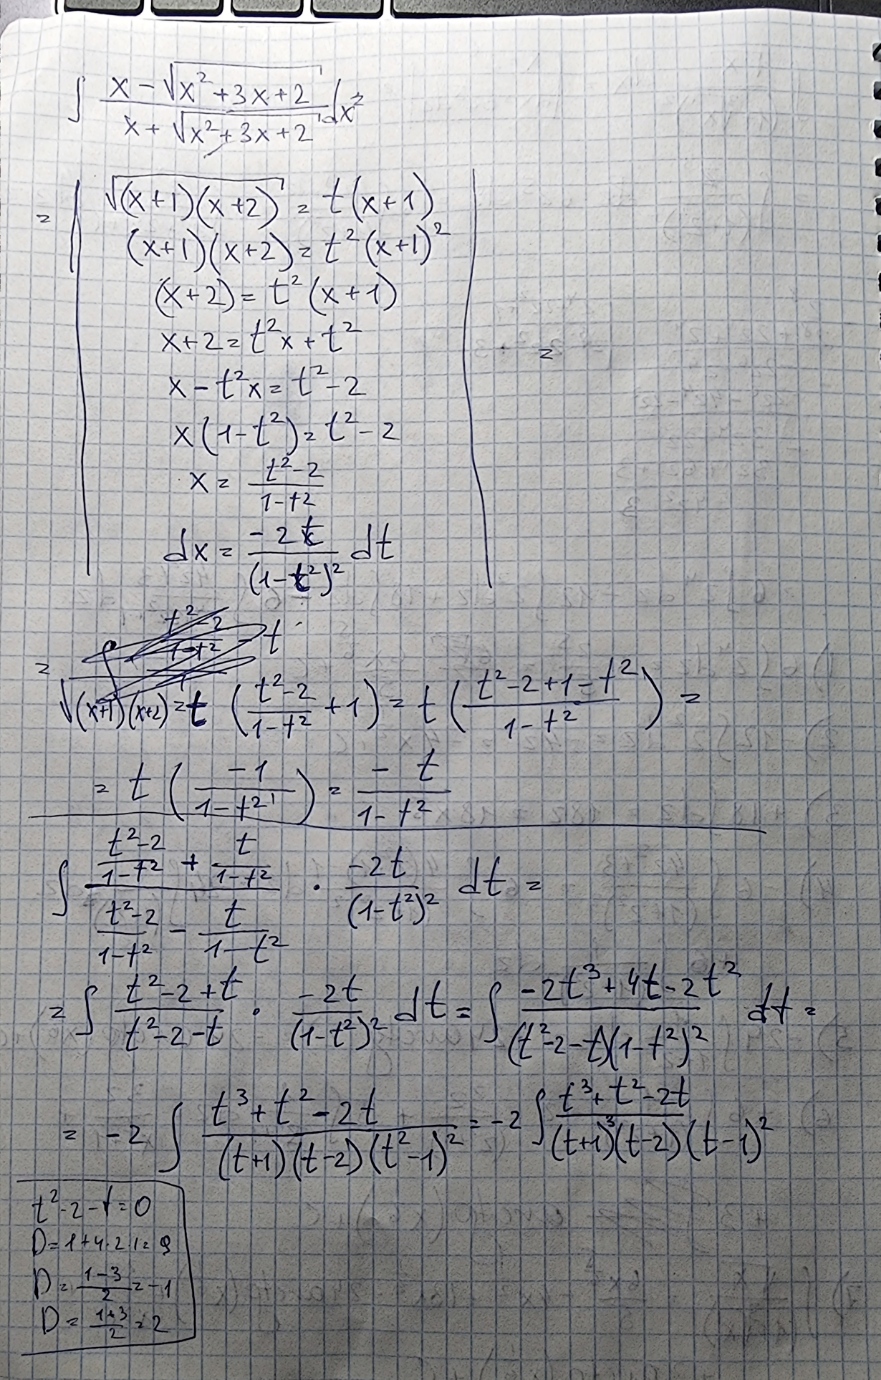 ∫ (x - √(x² + 3x + 2)) / (x + √(x² + 3x + 2)) dx =
= | √((x+1)(x+2)) = t(x+1)
(x+1)(x+2) = t²(x+1)²
(x+2) = t²(x+1)
x+2 = t²x + t²
x - t²x = t² - 2
x(1-t²) = t² - 2
x = (t²-2)/(1-t²)
dx = (-2t)/(1-t²)² dt | =
= √((x+1)(x+2)) = t ((t²-2)/(1-t²) + 1) = t ((t²-2+1-t²)/(1-t²)) =
= t (-1/(1-t²)) = -t/(1-t²)
∫ ((t²-2)/(1-t²) + t/(1-t²)) / ((t²-2)/(1-t²) - t/(1-t²)) · (-2t)/(1-t²)² dt =
= ∫ (t²-2+t)/(t²-2-t) · (-2t)/(1-t²)² dt = ∫ (-2t³+4t-2t²)/((t²-2-t)(1-t²)²) dt =
= -2 ∫ (t³+t²-2t)/((t+1)(t-2)(t²-1)²) = -2 ∫ (t³+t²-2t)/((t+1)³(t-2)(t-1)²)
t²-2-t=0
D=1+4·2·1=9
D = (1-3)/2 = -1
D = (1+3)/2 = 2